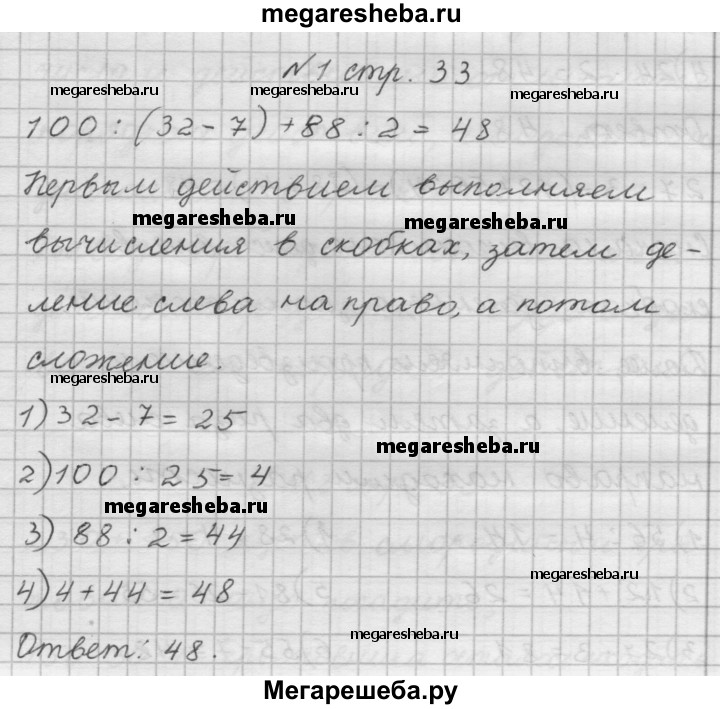 megaresheba.ru
№1 стр. 33
megaresheba.ru megaresheba.ru megaresheba.ru
100 : (32 - 7) + 88 : 2 = 48
Первым действием выполняем
megaresheba.ru megaresheba.ru
вычисления в скобках, затем де-
ление слева на право, а потом
сложение.
megaresheba.ru
1) 32 - 7 = 25
megaresheba.ru
2) 100 : 25 = 4
megaresheba.ru
3) 88 : 2 = 44
megaresheba.ru
4) 4 + 44 = 48
megaresheba.ru
Ответ: 48.
Мегарешеба.ру